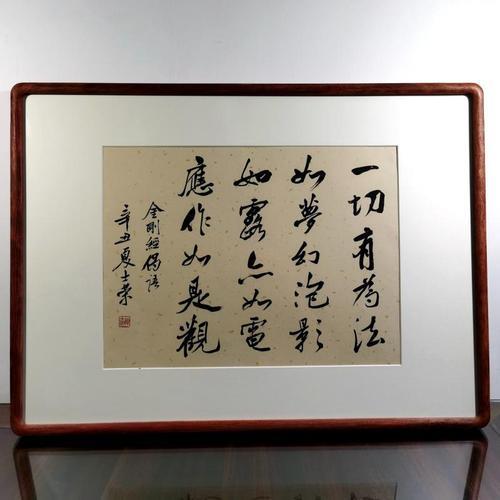 一切有為法
如夢幻泡影
如露亦如電
應作如是觀
金剛經偈語
辛丑夏士榮